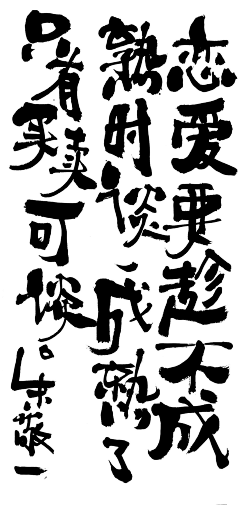 恋爱要趁不成
熟时谈，成熟了
只有买卖可谈。朱敬一